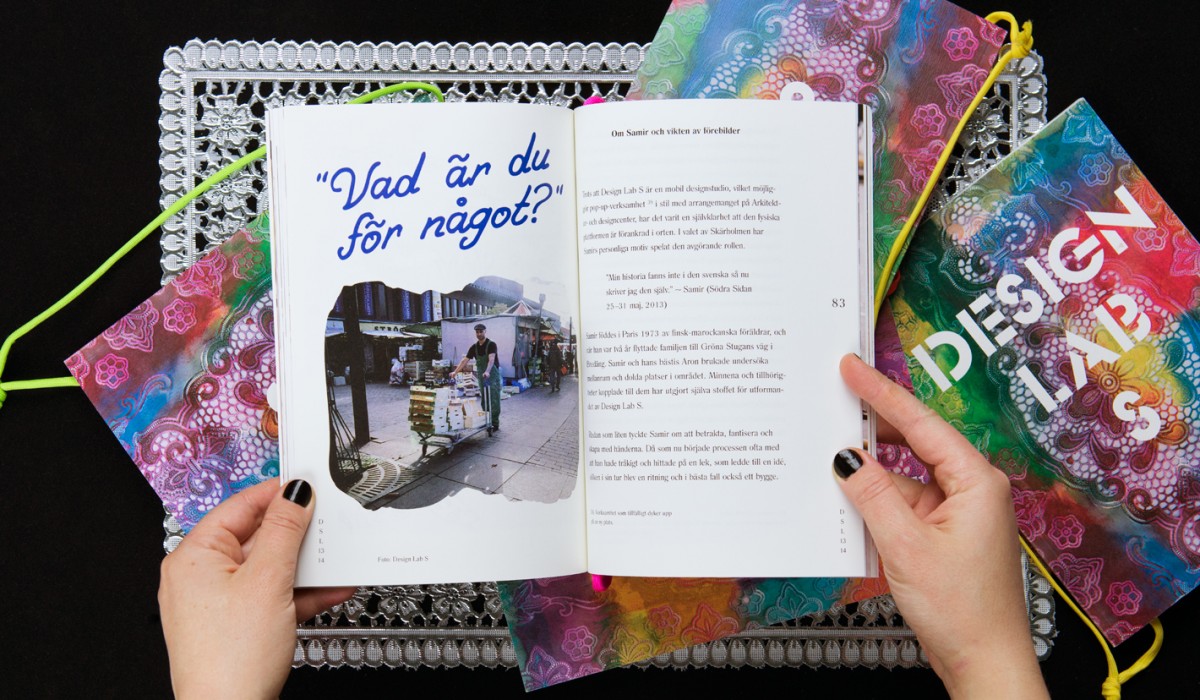 "Vad är du
för något?"
Foto: Design Lab S
D
S
L
13
14
Om Samir och vikten av förebilder
att Design Lab S är en mobil designstudio, vilket möjlig-
pop-up-verksamhet i stil med arrangemanget på Arkitekt-
och designcenter, har det varit en självklarhet att den fysiska
plattformen är förankrad i orten. I valet av Skärholmen har
Samirs personliga motiv spelat den avgörande rollen.
"Min historia fanns inte i den svenska så nu
skriver jag den själv." – Samir (Södra Sidan
25–31 maj, 2013)
83
Samir föddes i Paris 1973 av finsk-marockanska föräldrar, och
när han var två år flyttade familjen till Gröna Stugans väg i
Samir och hans bästis Aron brukade undersöka
mellanrum och dolda platser i området. Minnena och tillhörig-
heter kopplade till dem har utgjort själva stoffet för utforman-
det av Design Lab S.
Redan som liten tyckte Samir om att betrakta, fantisera och
skapa med händerna. Då som nu började processen ofta med
att han hade tråkigt och hittade på en lek, som ledde till en idé,
eller i sin tur blev en ritning och i bästa fall också ett bygge.
som tillfälligt dyker upp
D
S
L
13
14
DESIGN
LAB
S